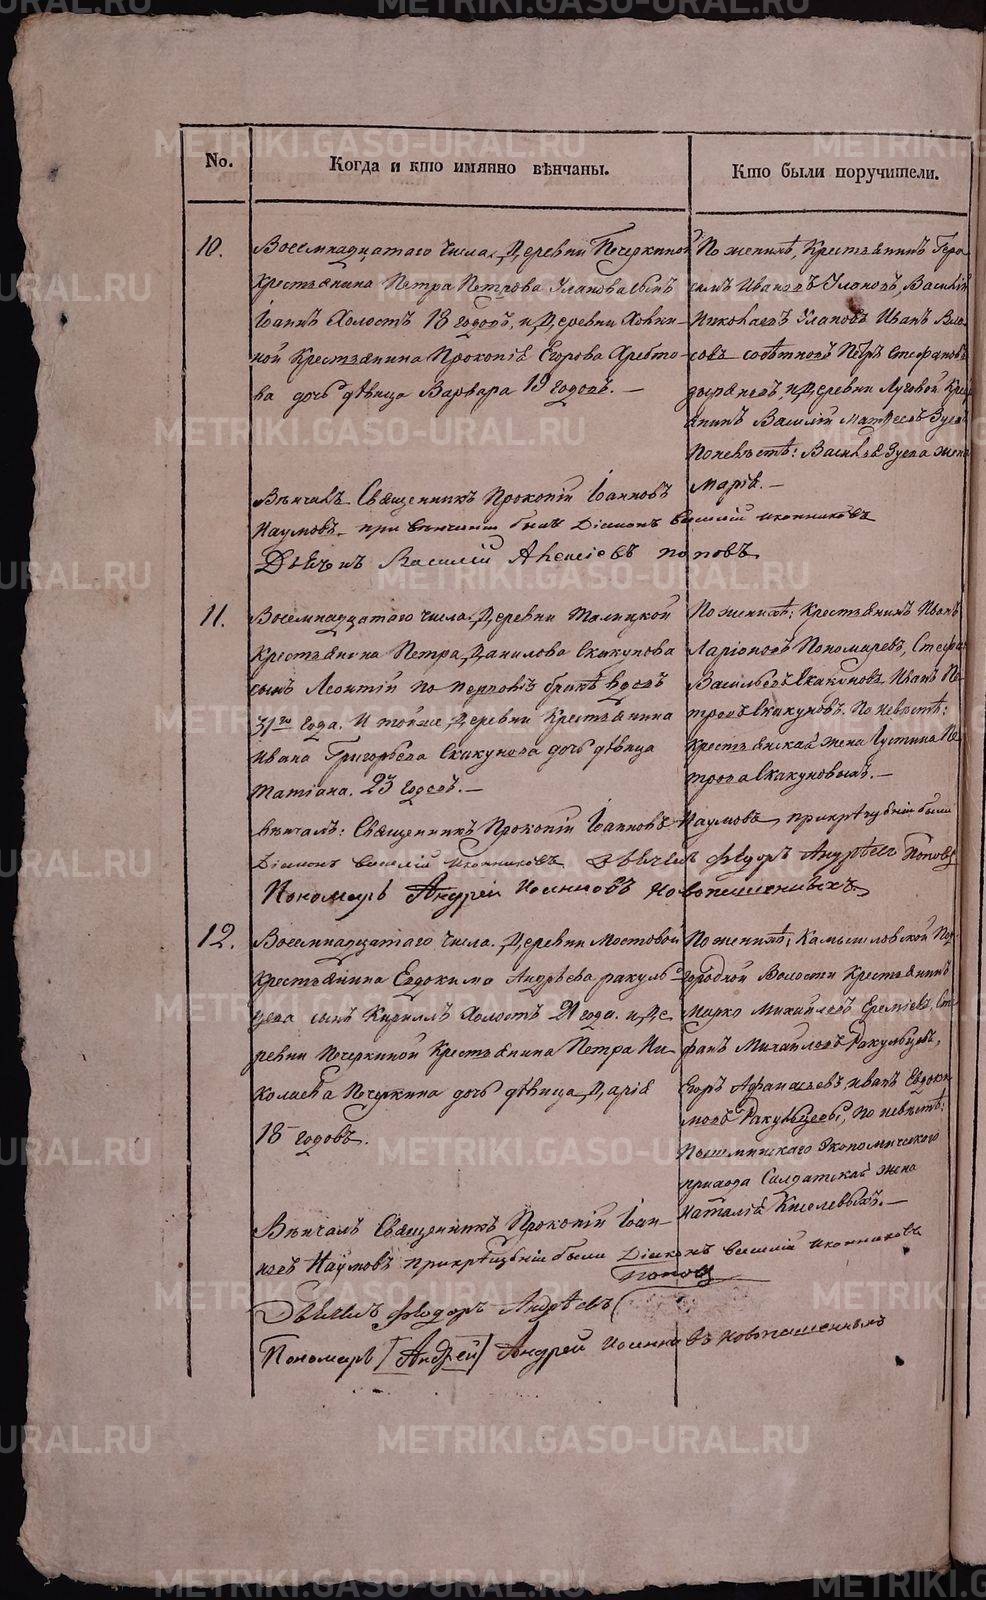 No.
Когда и кто имянно вѣнчаны.
Кто были поручители.
10.
Восемнадцатаго числа. Деревни Печеркиной
Крестьянина Петра Петрова Улапова сынъ
Іоаннъ Холостъ 18 годовъ, и деревни
ной Крестьянина Прокопія Егорова
ва дочь дѣвица Варвара 19 годовъ.—
Вѣнчалъ Священникъ Прокопій Іоанновъ
Наумовъ. при вѣнчаніи былъ Діаконъ Василій Иконниковъ
Дьячокъ Василій Алексіевъ Поповъ
По женихѣ, Крестьянинъ
симъ Ивановъ Улаповъ, Василій
Николаевъ Улаповъ Иванъ
Петръ Стефановъ
и деревни Луговой
Василій Зуевъ
По невѣстѣ: Василья Зуева жена
Марія.—
11.
Восемнадцатаго числа. Деревни Талицкой
Крестьянина Петра Данилова Скакунова
сынъ Леонтій по первомъ бракѣ вдовъ
31го года. И тойже деревни Крестьянина
Ивана Григорьева Скакунова дочь дѣвица
Татіана. 23 годовъ.—
вѣнчалъ: Священникъ Прокопій Іоанновъ Наумовъ, были
Діаконъ Василій Иконниковъ Дьячекъ Ѳедоръ Андрѣевъ Поповъ
Пономарь Андрей Іоанновъ Новопашенныхъ
По женихѣ: Крестьянинъ Иванъ
Ларіоновъ Пономаревъ, Стефанъ
Васильевъ Скакуновъ Иванъ Пе-
тровъ Скакуновъ. По невѣстѣ:
Крестьянская жена Іустина Пе-
трова Скакуновыхъ.—
12.
Восемнадцатаго числа. Деревни Мостовой
Крестьянина Евдокима Андрѣева Ракуль-
цева сынъ Кириллъ Холостъ 21 года. и де-
ревни Печеркиной Крестьянина Петра Ни-
колаева Печеркина дочь дѣвица Дарія
18 годовъ.
Вѣнчалъ Священникъ Прокопій Іоан-
новъ Наумовъ были Діаконъ Василій Иконниковъ
Поповъ
Дьячекъ Ѳедоръ Андрѣевъ
Пономарь [Андрей] Андрей Іоанновъ Новопашенныхъ
По женихѣ: Камышловской
городной Волости Крестьянинъ
Марко Михайловъ Еремѣевъ, Сте-
фанъ Михайловъ Ракульцевъ,
Егоръ Афанасьевъ, Иванъ Евдоки-
мовъ Ракульцовы, По невѣстѣ:
Пышминскаго Экономическаго
прихода Салдатская жена
Наталія Киселевыхъ.—
METRIKI.GASO-URAL.RU